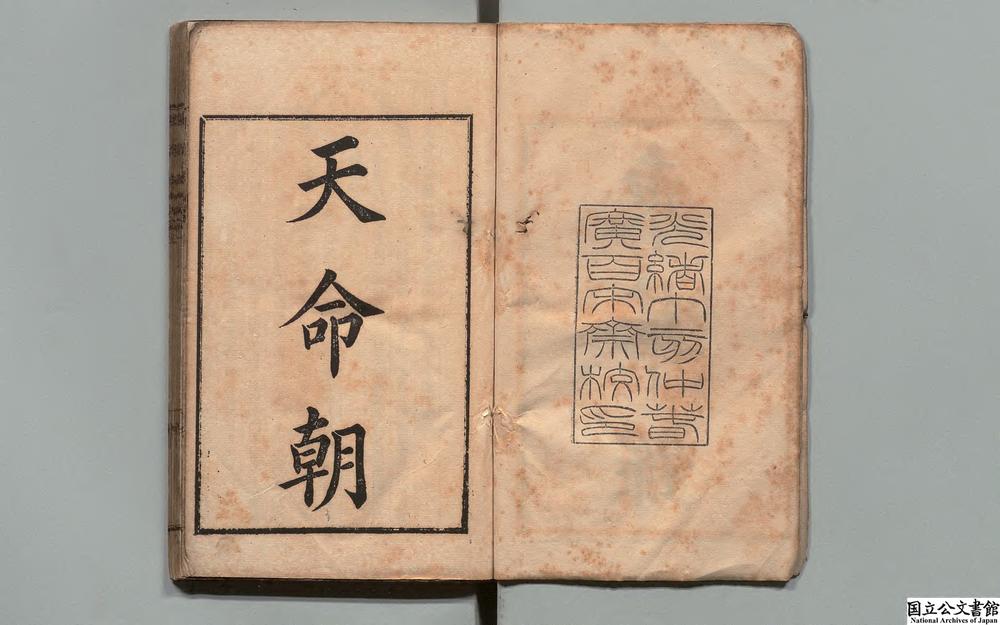 光緒丁亥仲春
廣百宋齋校印
天命朝
国立公文書館
National Archives of Japan